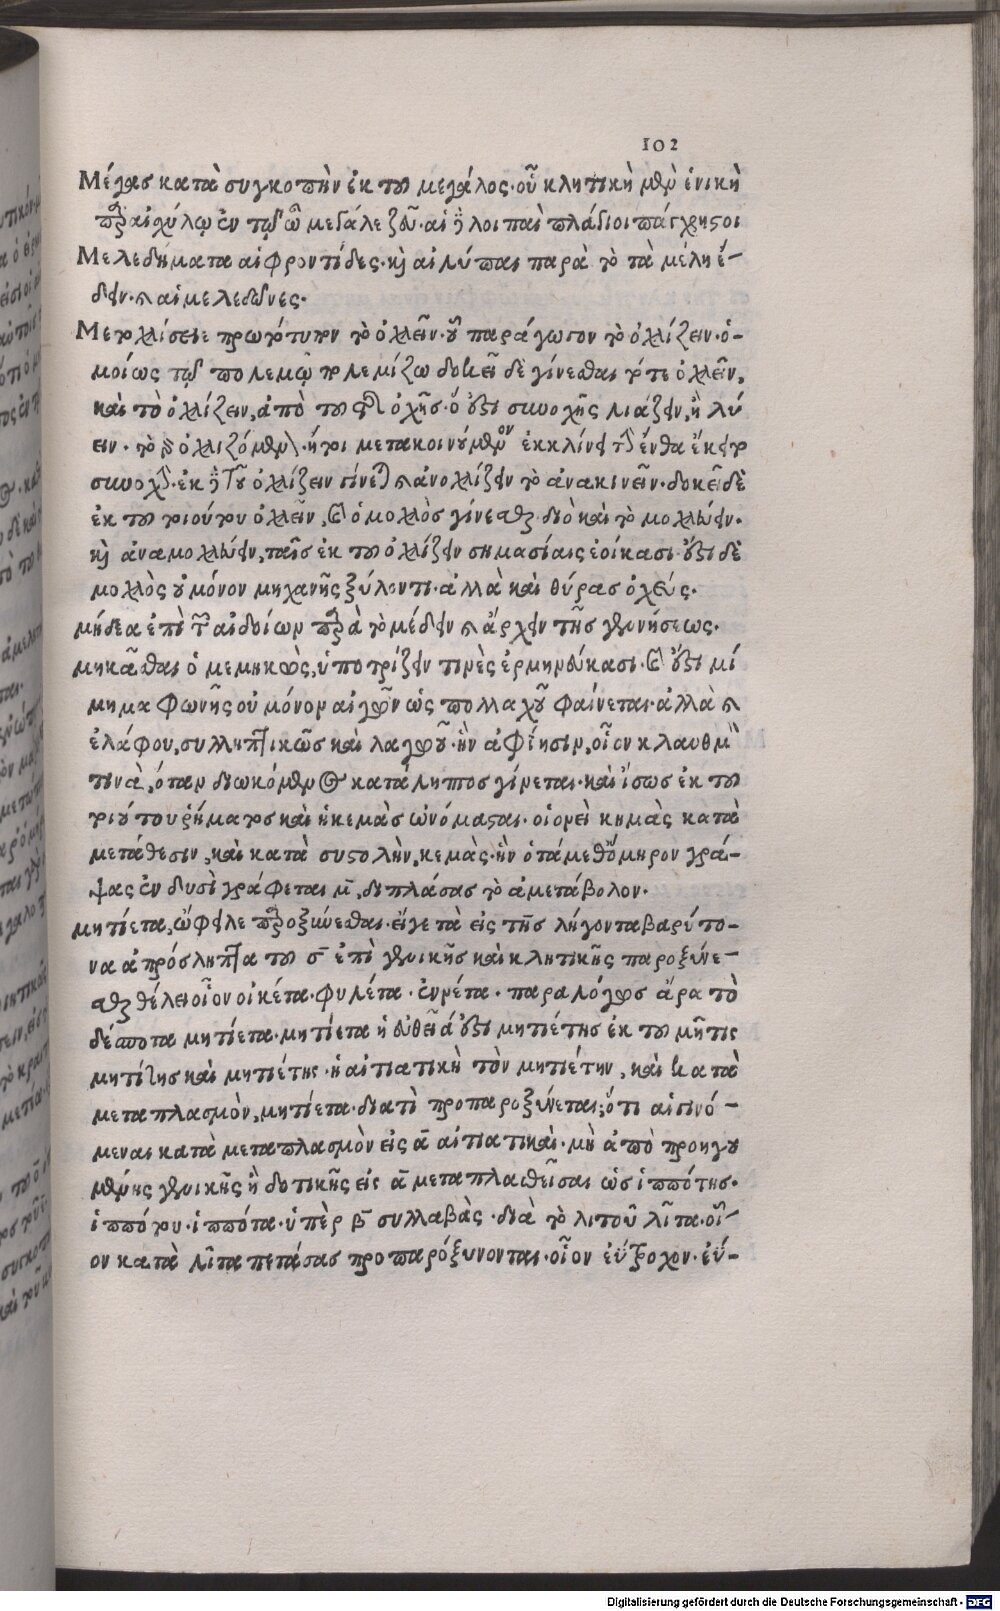 102
Μέγας κατὰ συγκοπὴν ἐκ του μεγάλος· οὗ κλητικὴ μὲν ἑνικὴ
παρ αἰσχύλῳ ἐν τῷ ὦ μεγάλε ζεῦ· αἱ δὲ λοιπαὶ πλάγιοι πάγχρηστοι
Μελεδήματα αἱ φροντίδες· καὶ αἱ λύπαι παρὰ τὸ τὰ μέλη ἔ-
δειν· καὶ αἱ μελεδῶνες·
πρωτότυπον τὸ ὀχλεῖν· οὗ παράγωγον τὸ ὀχλίζειν· ὁ-
μοίως τῷ πολεμῶ πολεμίζω δοκεῖ δὲ γίνεσθαι τό τε ὀχλεῖν,
καὶ τὸ ὀχλίζειν, ἀπὸ του ὀχῆς· ὅ ἐστι συνοχῆς λιάζειν, ἢ λύ
ειν· τὸ ὀχλιζόμενον· ἤτοι μετακοινούμενον ἐκκλίνει ἔνθα ἐκ
συνοχ ἐκ δὲ τοῦ ὀχλίζειν γίνεται καὶ ἀνοχλίζειν τὸ ἀνακινεῖν· δοκεῖ δὲ
ἐκ του τοιούτου ὀχλεῖν, καὶ ὁ μοχλὸς γίνεσθαι· διὸ καὶ τὸ μοχλεύειν·
καὶ ἀναμοχλεύειν, ταῖς ἐκ του ὀχλίζειν σημασίαις ἐοίκασι· ἔστι δὲ
μοχλὸς οὐ μόνον μηχανῆς ξύλον τι· ἀλλὰ καὶ θύρας ὀχεύς·
μήδεα ἐπὶ τῶν αἰδοίων παρὰ τὸ μέδειν καὶ ἄρχειν τῆς γεννήσεως·
μηκᾶσθαι ὁ μεμηκὼς, ὑποτρίζειν τινὲς ἑρμηνεύκασι· καὶ ἔστι μί
μημα φωνῆς οὐ μόνον αἰγῶν ὡς πολλαχοῦ φαίνεται· ἀλλὰ καὶ
ἐλάφου, συλληπτικῶς καὶ λαγωοῦ· ἣν ἀφίησιν, οἷον κλαυθμ
τινὰ, ὅταν διωκόμενος κατάληπτος γίνεται· καὶ ἴσως ἐκ του
τοιούτου ῥήματος καὶ ἡ κεμὰς ὠνόμασται· οἱονεὶ κημὰς κατὰ
μετάθεσιν, καὶ κατὰ συστολὴν, κεμὰς· ἣν ὁ τάμεθ ὅμηρον γρά-
ψας ἐν δυσὶ γράφεται μ̄, διπλάσας τὸ ἀμετάβολον·
μητίετα, ὤφειλε παροξύνεσθαι· εἴγε τὰ εἰς της λήγοντα βαρύτο-
να ἀπρόσληπτα του ς̄ ἐπὶ γενικῆς καὶ κλητικῆς παροξύνε-
σθαι θέλει οἷον οἰκέτα· φυλέτα· εὑρέτα· παραλόγως ἄρα τὸ
δέσποτα μητίετα· μητίετα ἡ εὐθεῖά ἐστι μητιέτης ἐκ του μῆτις
μητίτης καὶ μητιέτης· ἡ αἰτιατικὴ τὸν μητιέτην, καὶ κατὰ
μεταπλασμὸν, μητίετα· διατὶ προπαροξύνεται; ὅτι αἱ γινό-
μεναι κατὰ μεταπλασμὸν εἰς ᾱ αἰτιατικαὶ· μὴ ἀπὸ προηγου
μένης γενικῆς ἢ δοτικῆς εἰς ᾱ μεταπλασθεῖσαι ὡς ἱππότης·
ἱππότου· ἱππότα· ὑπὲρ β̄ συλλαβὰς· διὰ τὸ λιτοῦ λῖτα· οἷ-
ον κατὰ λῖτα πετάσας προπαρόξυνονται· οἷον εὐ-
Digitalisierung gefördert durch die Deutsche Forschungsgemeinschaft - DFG